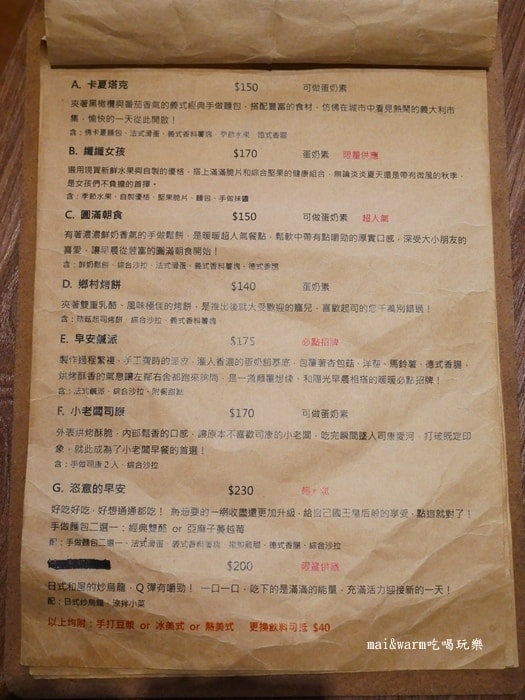 A. 卡夏塔克 $150 可做蛋奶素
夾著黑橄欖與番茄香氣的義式經典手做麵包，搭配豐富的食材，仿佛在城市中看見熱鬧的義大利市
集，愉快的一天從此開啟！
含：佛卡夏麵包、法式滑蛋、義式香料薯塊、季節水果、德式香腸
B. 纖纖女孩 $170 蛋奶素 限量供應
選用現買新鮮水果與自製的優格，搭上滿滿脆片和綜合堅果的健康組合，無論炎炎夏天還是帶有微風的秋季，
是女孩們不負擔的首擇。
含：季節水果、自製優格、堅果脆片、麵包、手做抹醬
C. 圓滿朝食 $150 可做蛋奶素 超人氣
有著濃濃鮮奶香氣的手做鬆餅，是暖暖超人氣餐點，鬆軟中帶有點嚼勁的厚實口感，深受大小朋友的
喜愛、讓早晨從豐富的圓滿朝食開始！
含：鮮奶鬆餅、綜合沙拉、法式滑蛋、義式香料薯塊、德式香腸
D. 鄉村烤餅 $140 蛋奶素
夾著雙重乳酪、風味極佳的烤餅，是推出後就大受歡迎的寵兒，喜歡起司的您千萬別錯過！
含：蘑菇起司烤餅、綜合沙拉、義式香料薯塊
E. 早安鹹派 $175 必點招牌
製作過程繁複，手工擀時的派皮，灌入香濃的蛋奶餡基底，包覆著杏包菇、洋蔥、馬鈴薯、德式香腸，
烘烤酥香的氣息讓左鄰右舍都跑來詢問，是一週顛覆想像、和陽光早晨相搭的暖暖必點招牌！
含：法式鹹派、綜合沙拉、附餐甜點
F. 小老闆司康 $170 可做蛋奶素
外表烘烤酥脆，內部鬆香的口感，讓原本不喜歡司康的小老闆，吃完瞬間墜入司康愛河，打破既定印
象，就此成為了小老闆早餐的首選！
含：手做司康2入、綜合沙拉
G. 恣意的早安 $230 超人氣
好吃好吃，好想通通都吃！ 將想要的一網收盡還更加升級，給自己國王皇后般的享受、點這就對了！
手做麵包二選一：經典雙酪 or 亞麻子蔓越莓
配：手做麵包二選一、法式滑蛋、義式香料薯塊、德式香腸、綜合沙拉
$200 限量供應
日式和風的炒烏龍，Q彈有嚼勁！ 一口一口，吃下的是滿滿的能量，充滿活力迎接新的一天！
配：日式炒烏龍、涼拌小菜
以上均附：手打豆漿 or 冰美式 or 熱美式 更換飲料可抵 $40
mai&warm吃喝玩樂